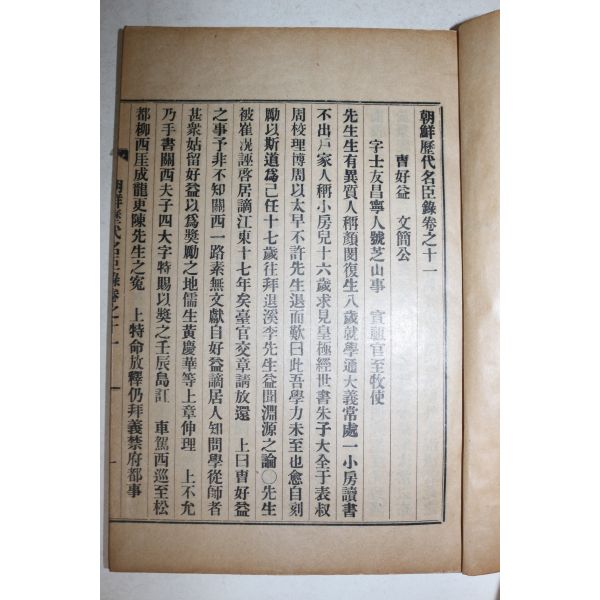 朝鮮歷代名臣錄卷之十一
曺好益 文簡公
字士友昌寧人號芝山事 宣廟官至牧使
先生生有異質人稱顔閔復生八歲就學通大義常處一小房讀書
不出戶家人稱小房兒十六歲求見皇極經世書朱子大全于表叔
周校理博周以太早不許先生退而歎曰此吾學力未至也愈自刻
勵以斯道爲己任十七歲往拜退溪李先生益聞淵源之論〇先生
被崔滉誣啓居謫江東十七年矣臺官交章請放還 上曰曺好益
之事予非不知關西一路素無文獻自好益謫居人知問學從師者
甚衆姑留好益以爲奬勵之地儒生黃慶華等上章伸理 上不允
乃手書關西夫子四大字特賜以奬之壬辰島訌 車駕西巡至松
都柳西厓成龍吏陳先生之寃 上特命放釋仍拜義禁府都事
朝鮮歷代名臣錄卷之十一 一